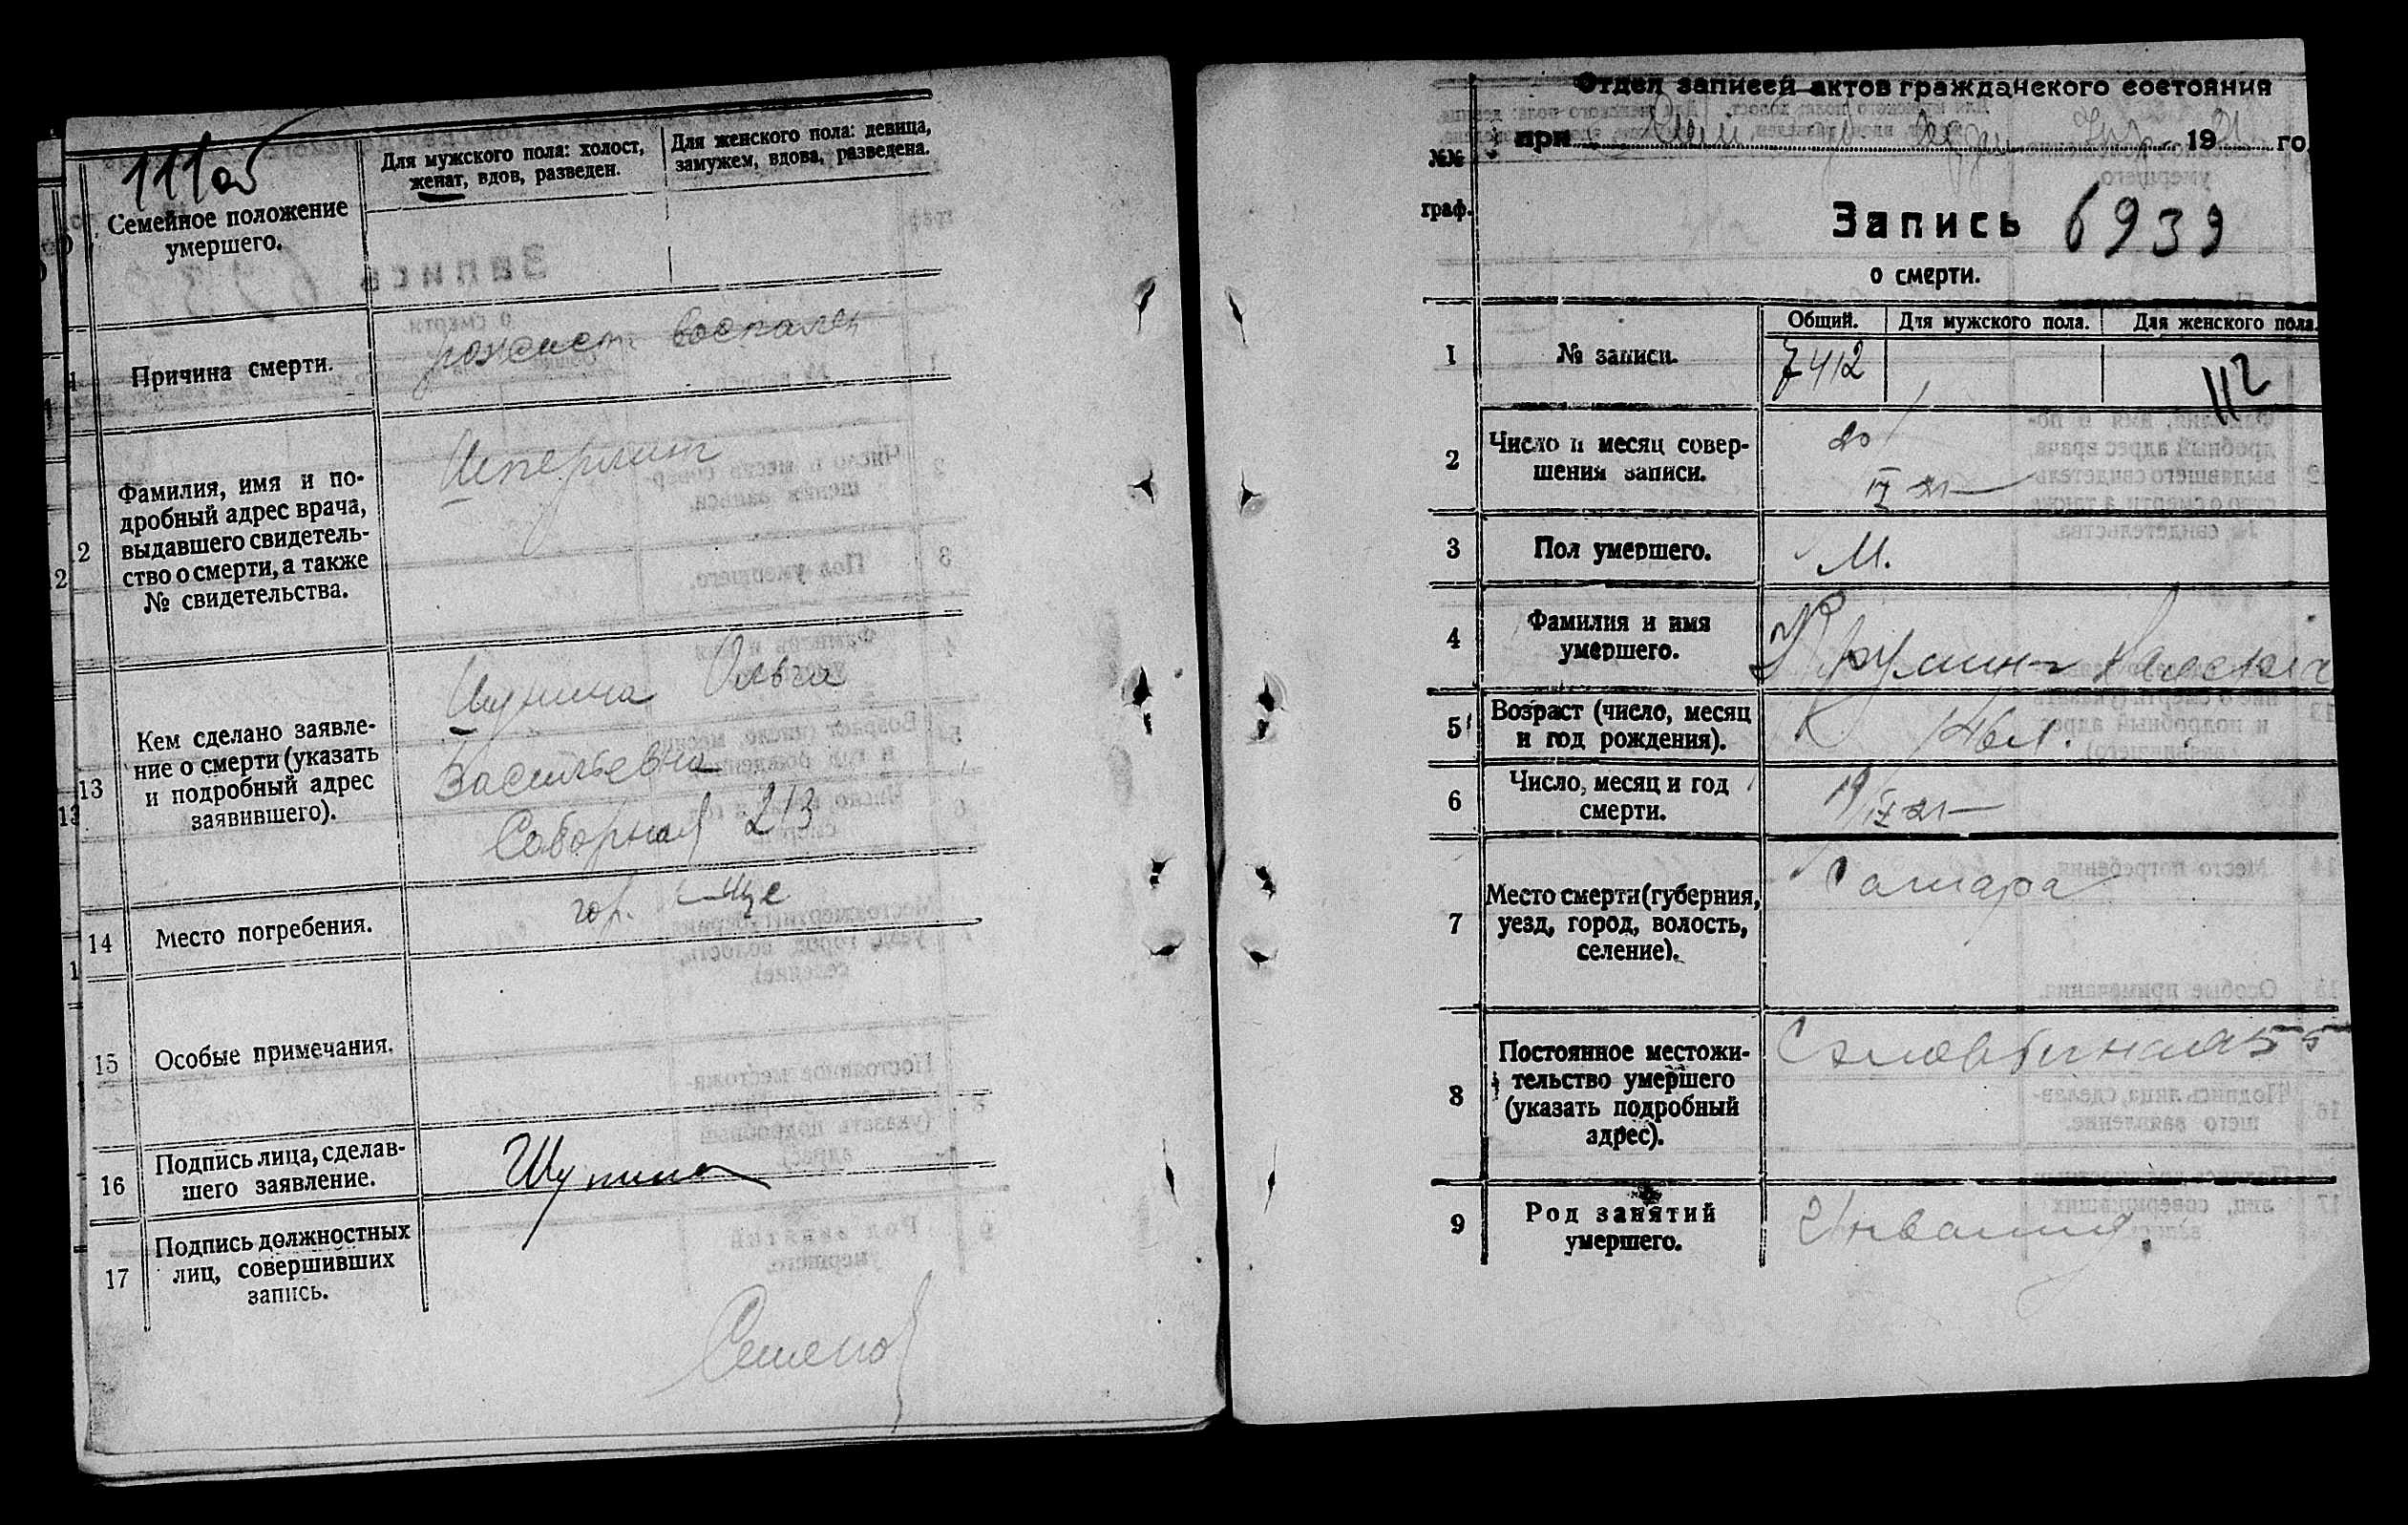 111об
Семейное положение
умершего.
Для мужского пола: холост,
женат, вдов, разведен.
Для женского пола: девица,
замужем, вдова, разведена.
Причина смерти.
рожист. воспален
2
Фамилия, имя и по-
дробный адрес врача,
выдавшего свидетель-
ство о смерти, а также
№ свидетельства.
13
Кем сделано заявле-
ние о смерти (указать
и подробный адрес
заявившего).
Шунина Ольга
Васильевна
Соборная 213
14
Место погребения.
гор. к-ще
15
Особые примечания.
16
Подпись лица, сделав-
шего заявление.
17
Подпись должностных
лиц, совершивших
запись.
Семенов
Отдел записей актов гражданского состояния
при
1921 го
№№
граф.
Запись 6939
о смерти.
1
№ записи.
Общий.
Для мужского пола.
Для женского пола.
7412
112
2
Число и месяц совер-
шения записи.
20/
IX 21
3
Пол умершего.
М.
4
Фамилия и имя
умершего.
5
Возраст (число, месяц
и год рождения).
6
Число, месяц и год
смерти.
19/IX 21
7
Место смерти (губерния,
уезд, город, волость,
селение).
Самара
8
Постоянное местожи-
тельство умершего
(указать подробный
адрес).
9
Род занятий
умершего.
Инвалид.